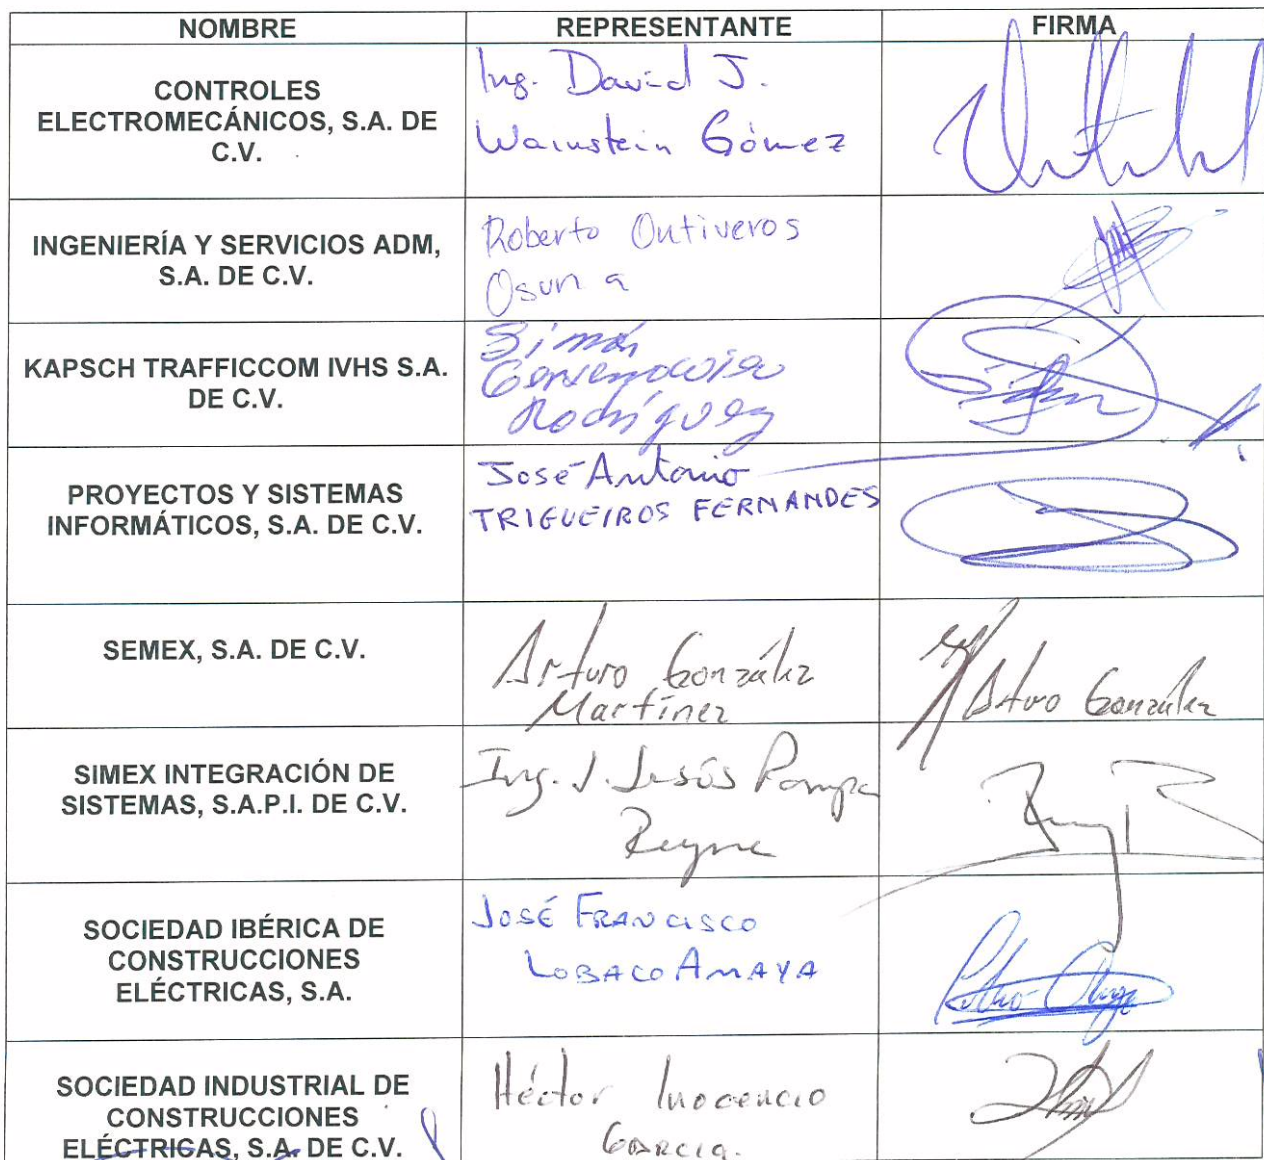 NOMBRE REPRESENTANTE FIRMA
CONTROLES
ELECTROMECÁNICOS, S.A. DE
C.V.
Ing. David J.
Wainstein Gómez
INGENIERÍA Y SERVICIOS ADM,
S.A. DE C.V.
Roberto Ontiveros
Osuna
KAPSCH TRAFFICCOM IVHS S.A.
DE C.V.
Simón
Rodríguez
PROYECTOS Y SISTEMAS
INFORMÁTICOS, S.A. DE C.V.
José Antonio
TRIGUEIROS FERNANDES
SEMEX, S.A. DE C.V.
Arturo González
Martínez
Arturo González
SIMEX INTEGRACIÓN DE
SISTEMAS, S.A.P.I. DE C.V.
Ing. J. Jesús Pampa
Reyna
SOCIEDAD IBÉRICA DE
CONSTRUCCIONES
ELÉCTRICAS, S.A.
JOSÉ FRANCISCO
LOBACO AMAYA
SOCIEDAD INDUSTRIAL DE
CONSTRUCCIONES
ELÉCTRICAS, S.A. DE C.V.
Héctor Inocencio
GARCIA.